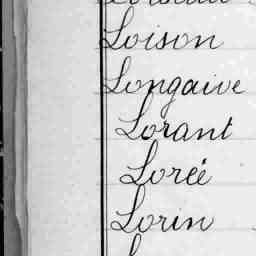 Loison
Longaive
Lorant
Lorée
Lorin